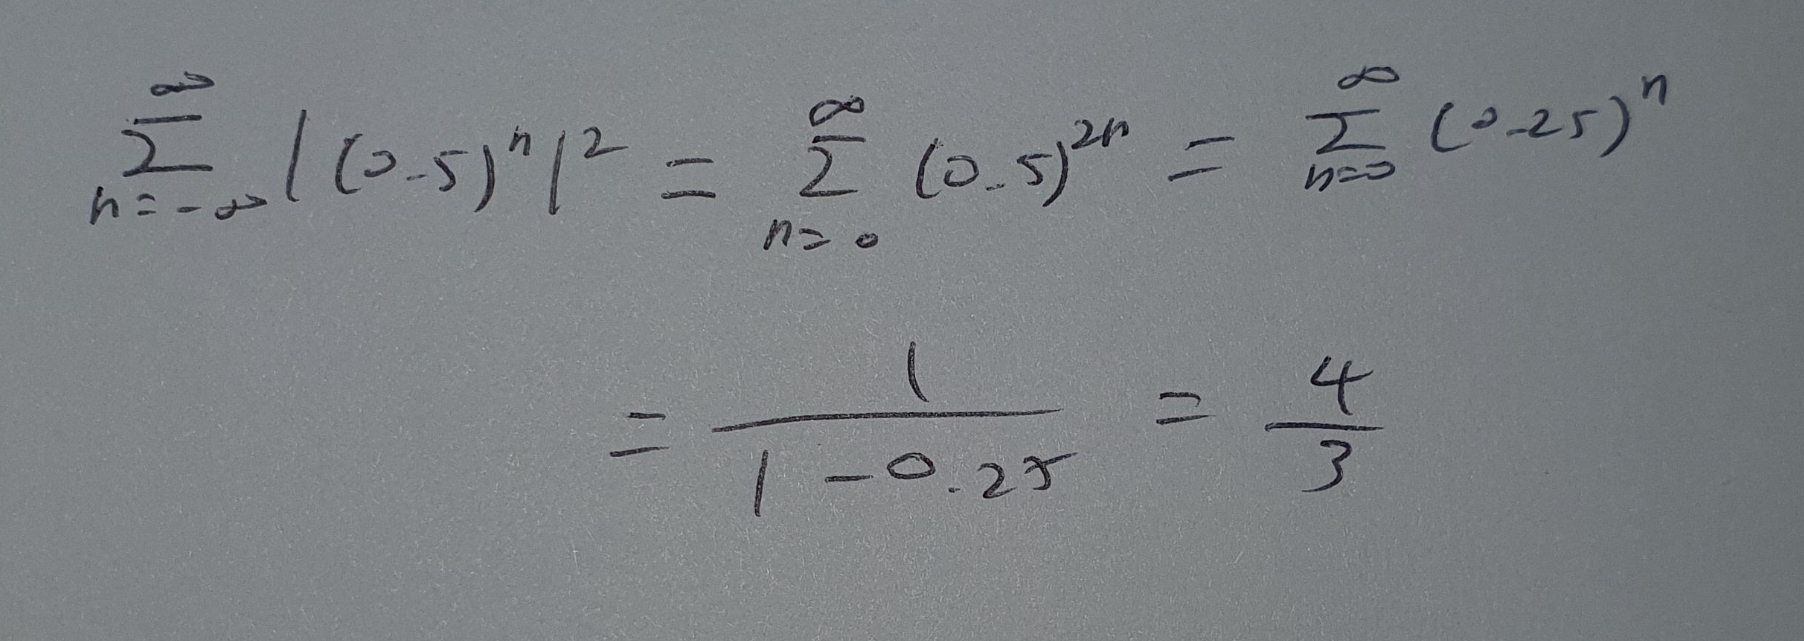 ∞∑n=-∞ |(0.5)ⁿ|² = ∞∑n=0 (0.5)²ⁿ = ∞∑n=0 (0.25)ⁿ
= 1/(1-0.25) = 4/3